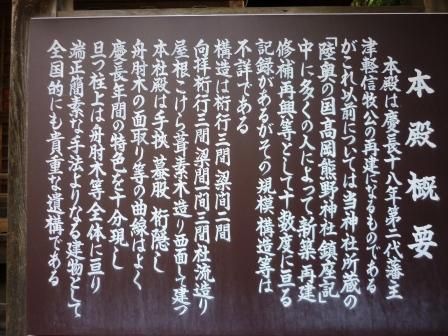 本殿概要
本殿は慶長十八年第二代藩主
津軽信牧公の再建になるものである
がこれ以前については当神社所蔵の
「陸奥の国高岡熊野神社鎮座記」
中に多くの人によって新築再建
修補再興等として十数度に亘る
記録があるがその規模構造等は
不詳である
構造は桁行三間 梁間二間
向拝桁行三間 梁間一間 三間社流造り
屋根こけら葺素木造り西面して建つ
本社殿は手挟 蟇股 桁隠し
舟肘木の面取り等の曲線はよく
慶長年間の特色を十分現し
且つ柱上は舟肘木等全体に亘り
端正簡素な手法よりなる建物として
全国的にも貴重な遺構である